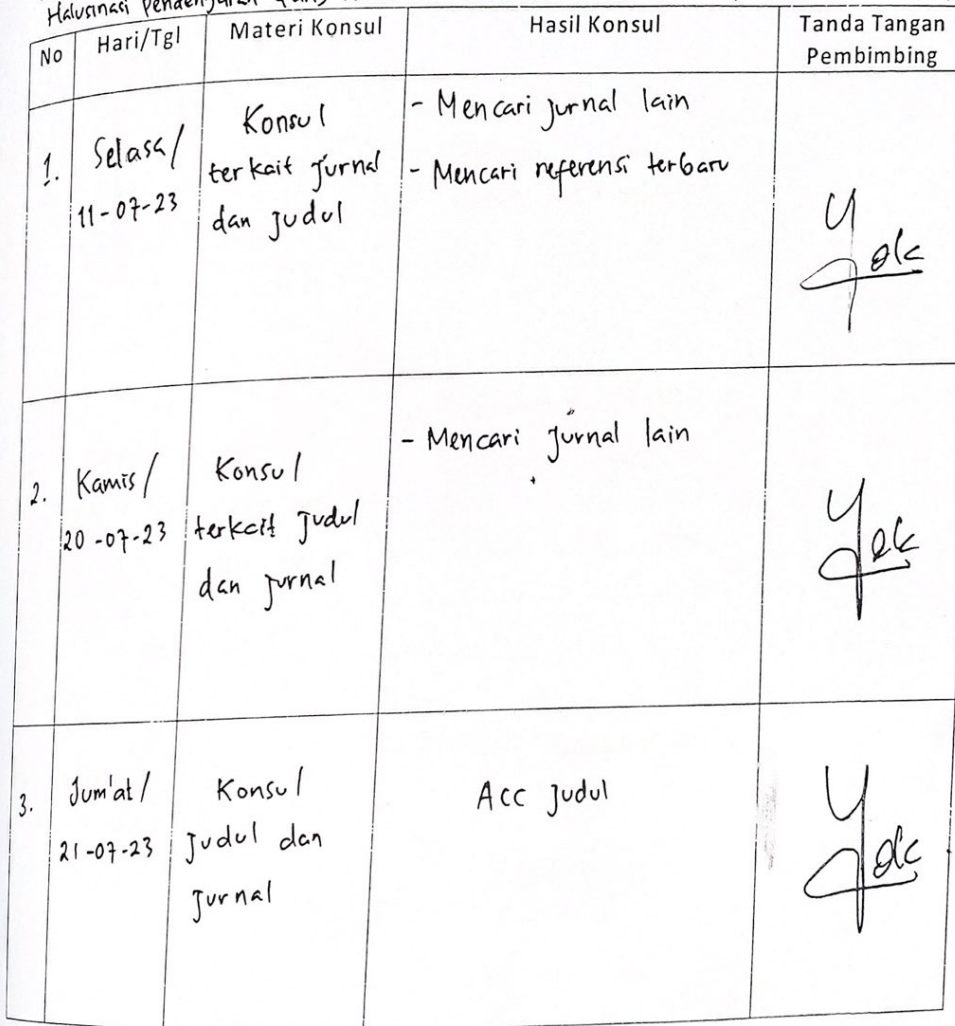 Halusinasi Pendengaran
No Hari/Tgl Materi Konsul Hasil Konsul Tanda Tangan
Pembimbing
1. Selasa/
11-07-23
Konsul
terkait Jurnal
dan Judul
- Mencari jurnal lain
- Mencari referensi terbaru
2. Kamis/
20-07-23
Konsul
terkait Judul
dan jurnal
- Mencari Jurnal lain
3. Jum'at/
21-07-23
Konsul
Judul dan
Jurnal
Acc Judul